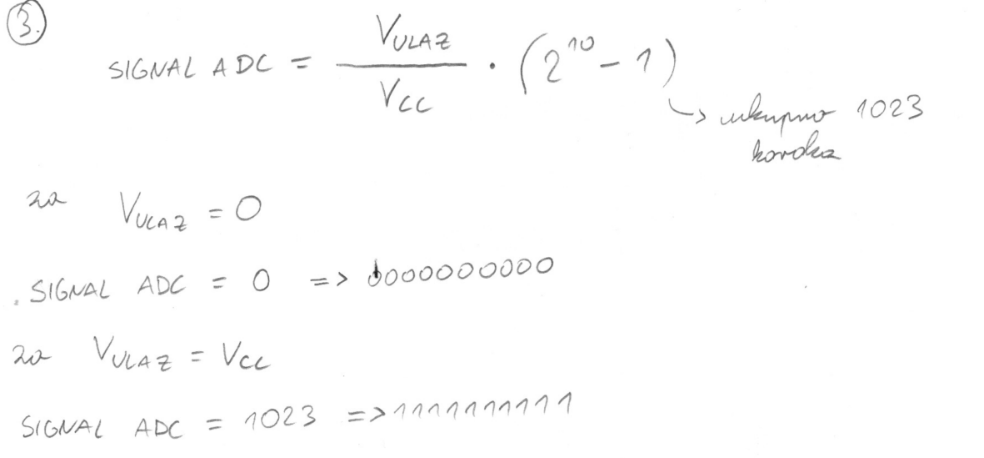 3.
SIGNAL ADC = V_ULAZ / V_CC · (2^10 - 1)
↳ ukupno 1023
koraka
za V_ULAZ = 0
SIGNAL ADC = 0 => 0000000000
za V_ULAZ = V_CC
SIGNAL ADC = 1023 => 1111111111